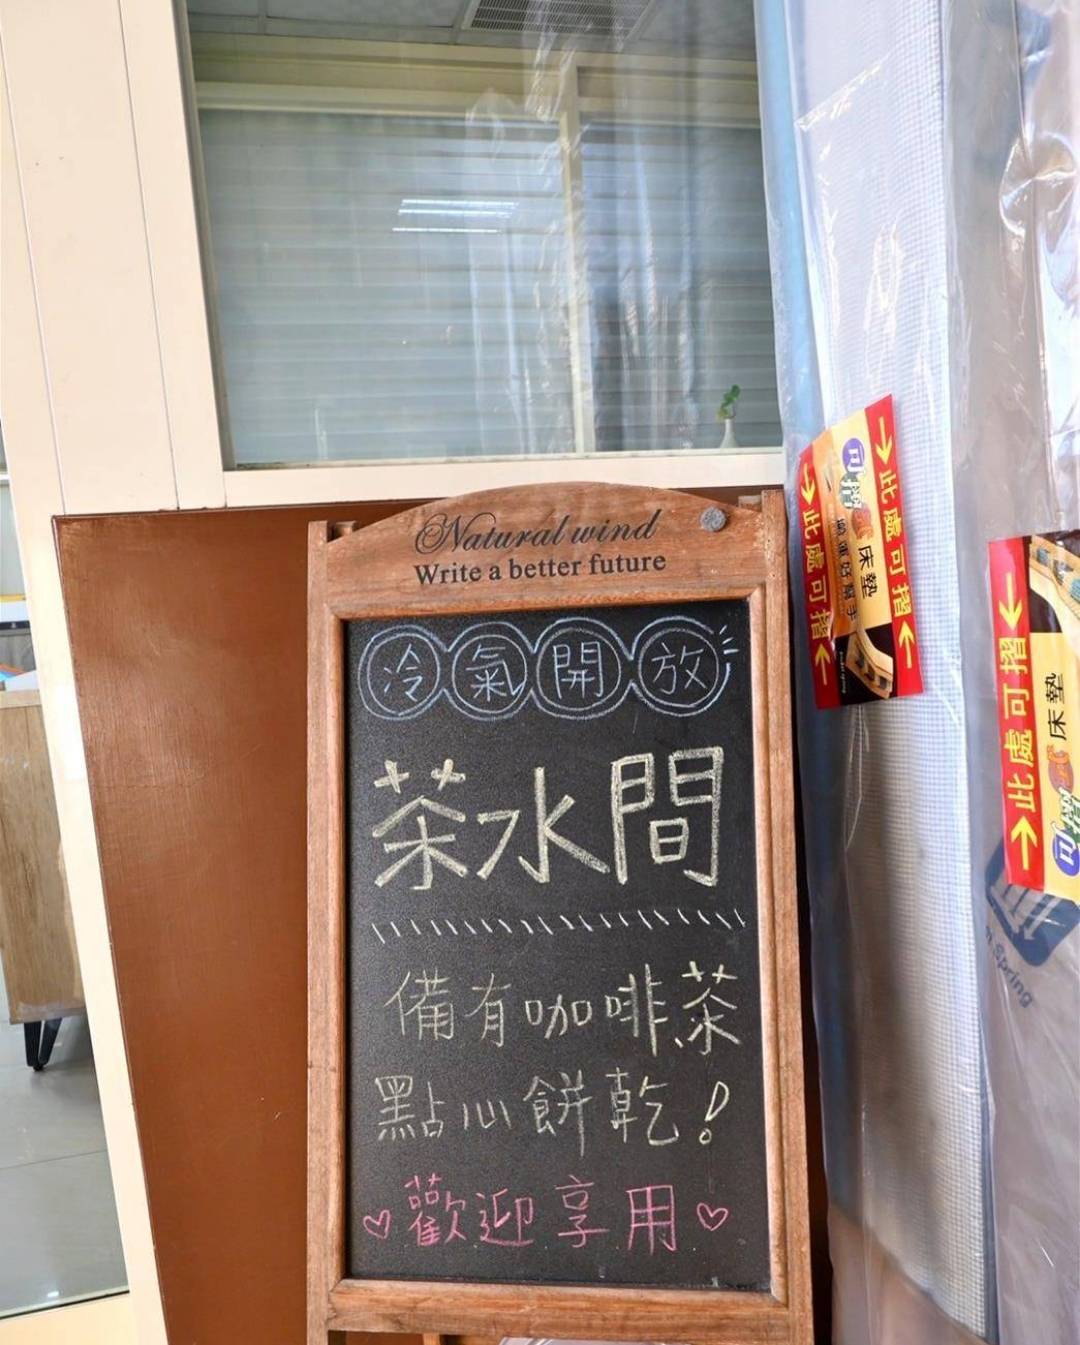 Natural wind
Write a better future
冷氣開放
茶水間
備有咖啡、茶
點心餅乾!
歡迎享用
此處可摺
可摺式床墊
搬運好幫手
此處可摺
此處可摺
可摺式床墊
Spring